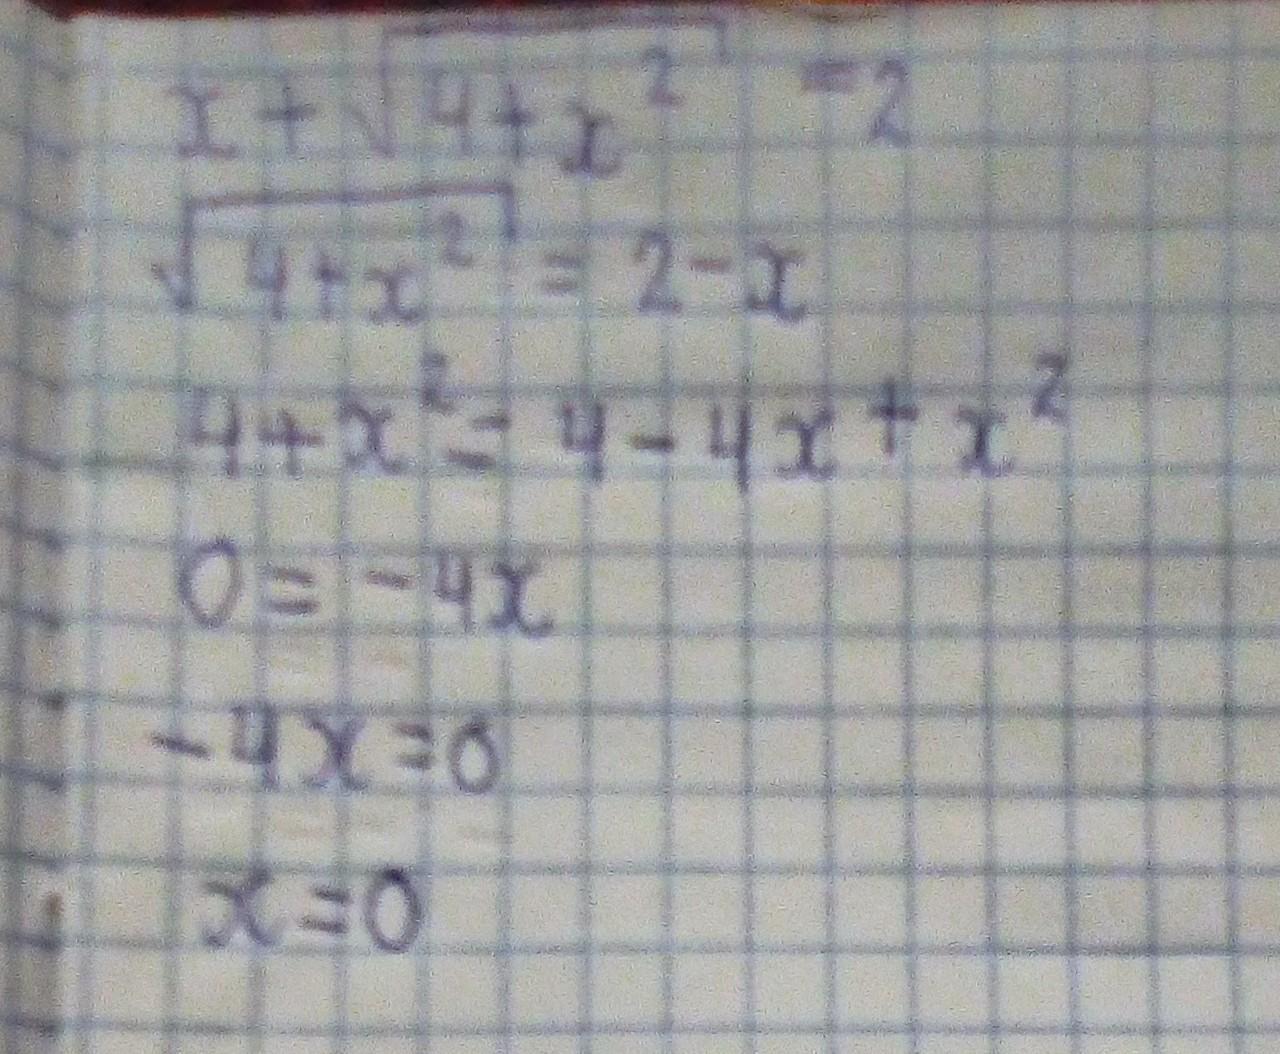 x + √(4+x²) = 2
√(4+x²) = 2 - x
4+x² = 4 - 4x + x²
0 = -4x
-4x = 0
x = 0